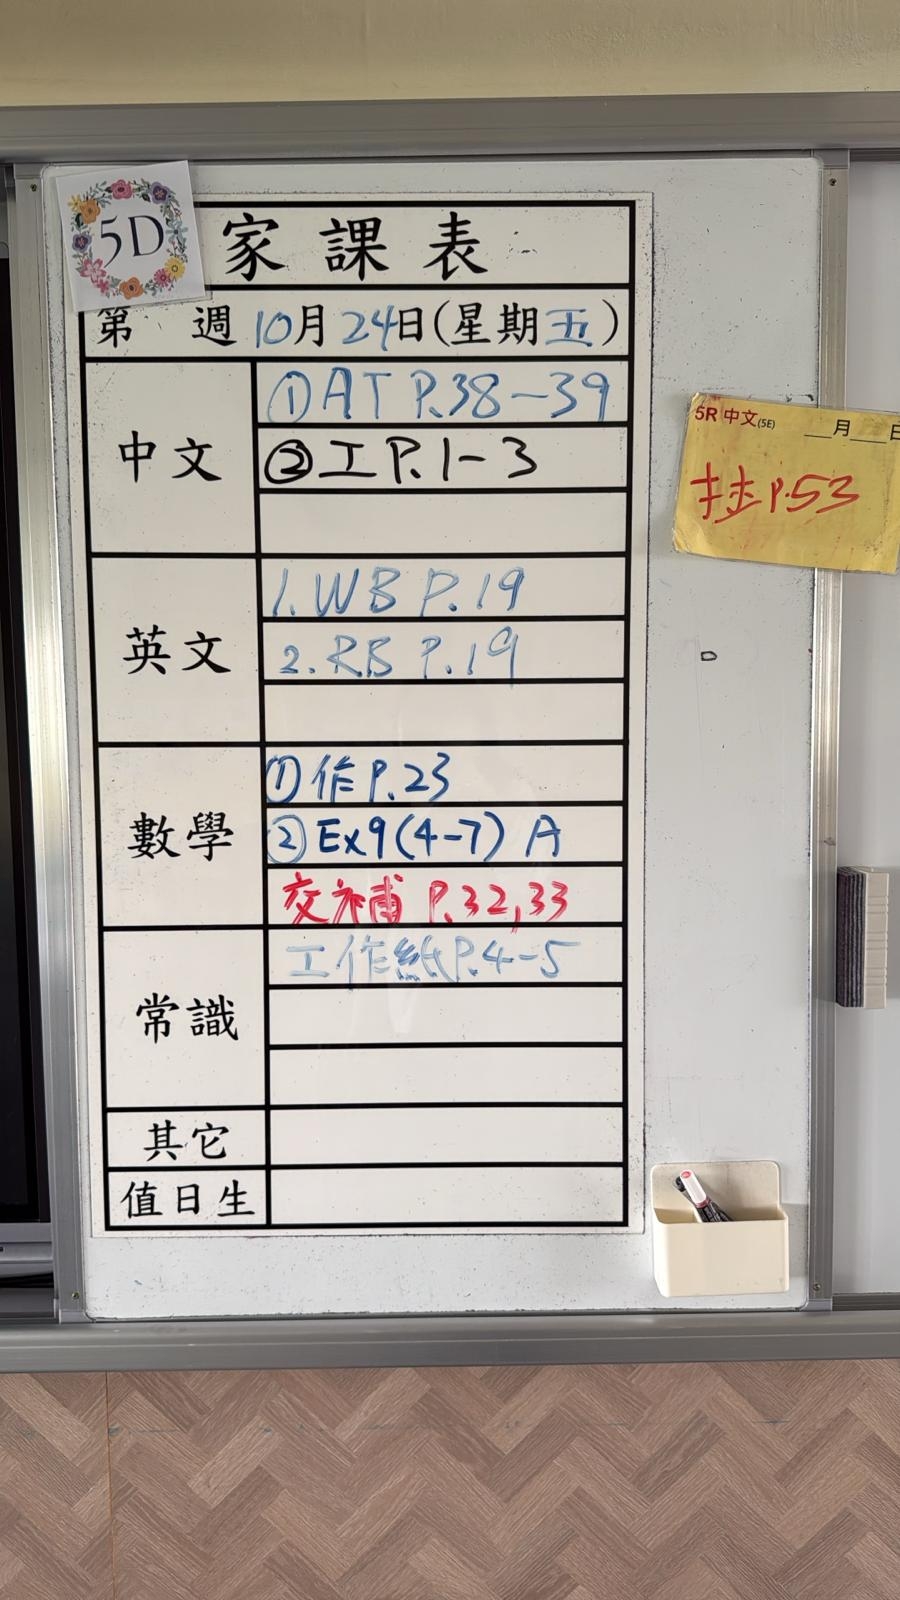 5D
家課表
第 週 10月24日(星期五)
中文
①AT P.38-39
②工P.1-3
英文
1.WB P.19
2.RB P.19
數學
①作P.23
②Ex9(4-7) A
交補 P.32,33
常識
工作紙P.4-5
其它
值日生
5R 中文(5E) __月__日
P.53